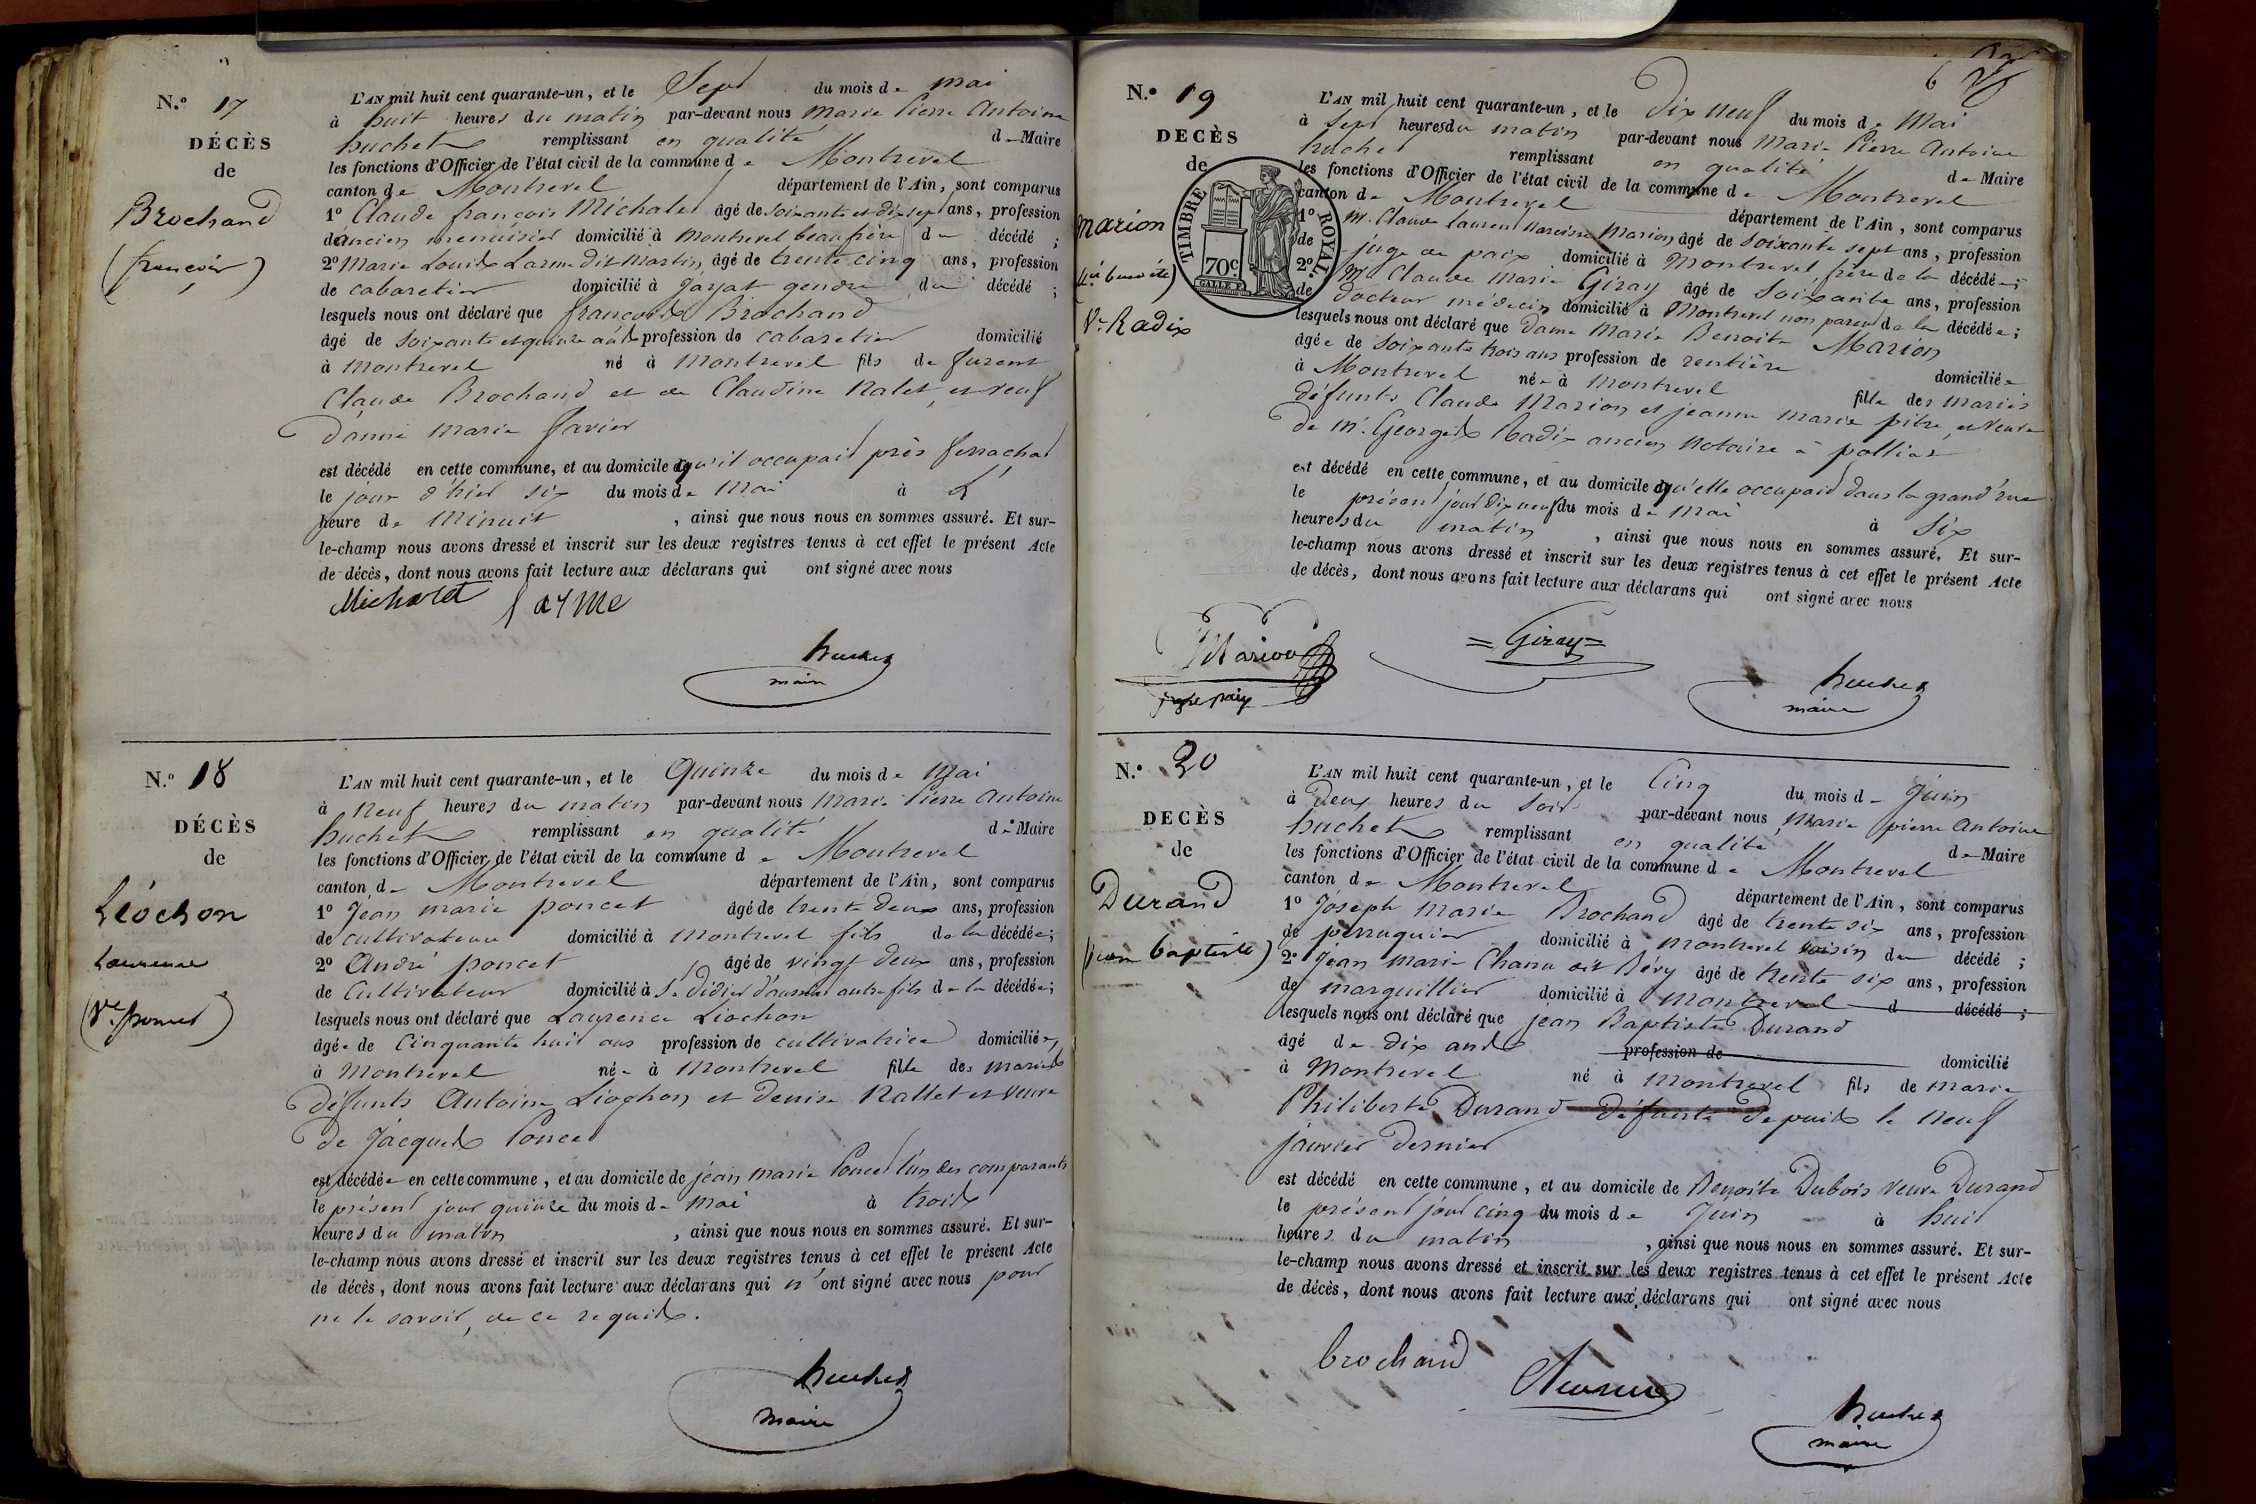 N.º 17
DÉCÈS
de
Brochand
(françois)
L'AN mil huit cent quarante-un, et le Sept du mois de mai
à huit heures du matin par-devant nous Marie Pierre Antoine
huchet remplissant en qualité de Maire
les fonctions d'Officier de l'état civil de la commune de Montrevel
canton de Montrevel département de l'Ain, sont comparus
1º Claude françois Michalet âgé de soixante et dix sept ans, profession
d'ancien menuisier domicilié à Montrevel beau frère du décédé ;
2º Marie Louis Larme dit Martin âgé de trente cinq ans, profession
de cabaretier domicilié à Jayat gendre du décédé ;
lesquels nous ont déclaré que françois Brochand
âgé de soixante et quinze ans profession de cabaretier domicilié
à Montrevel né à Montrevel fils de furent
Claude Brochand et de Claudine Ralet, et veuf
d'anne marie favier
est décédé en cette commune, et au domicile qu'il occupait près
le jour d'hier six du mois de Mai à L'
heure de Minuit , ainsi que nous nous en sommes assuré. Et sur-
le-champ nous avons dressé et inscrit sur les deux registres tenus à cet effet le présent Acte
de décès, dont nous avons fait lecture aux déclarans qui ont signé avec nous
Michalet Larme
huchet
maire
N.º 18
DÉCÈS
de
Léochon
Laurence
(Ve. poncet)
L'AN mil huit cent quarante-un, et le Quinze du mois de Mai
à Neuf heures du matin par-devant nous Marie Pierre Antoine
huchet remplissant en qualité de Maire
les fonctions d'Officier de l'état civil de la commune de Montrevel
canton de Montrevel département de l'Ain, sont comparus
1º Jean marie poncet âgé de trente deux ans, profession
de cultivateur domicilié à Montrevel fils de la décédée ;
2º André poncet âgé de vingt deux ans, profession
de Cultivateur domicilié à St Didier d'aussiat autre fils de la décédée ;
lesquels nous ont déclaré que Laurence Liochon
âgée de Cinquante huit ans profession de cultivatrice domiciliée
à Montrevel née à Montrevel fille des mariés
défunts Antoine Liochon et Denise Rallet et veuve
de Jacques Poncet
est décédée en cette commune, et au domicile de jean marie Poncet l'un des comparants
le présent jour quinze du mois de mai à trois
heures du matin , ainsi que nous nous en sommes assuré. Et sur-
le-champ nous avons dressé et inscrit sur les deux registres tenus à cet effet le présent Acte
de décès, dont nous avons fait lecture aux déclarans qui n'ont signé avec nous pour
ne le savoir, de ce requis.
huchet
maire
6
N.º 19
DECÈS
de
Marion
Ve. Radix
TIMBRE ROYAL.
70c.
L'AN mil huit cent quarante-un, et le Dix neuf du mois de Mai
à Sept heures du matin par-devant nous Marie Pierre Antoine
huchet remplissant en qualité de Maire
les fonctions d'Officier de l'état civil de la commune de Montrevel
canton de Montrevel département de l'Ain, sont comparus
1º M. Claude Laurent Narcisse Marion âgé de soixante sept ans, profession
de juge de paix domicilié à Montrevel, frère de la décédée ;
2º Mr Claude Marie Giray âgé de Soixante ans, profession
de docteur médecin domicilié à Montrevel non parent de la décédée ;
lesquels nous ont déclaré que dame Marie Benoite Marion
âgée de soixante trois ans profession de rentière domiciliée
à Montrevel née à Montrevel fille des mariés
défunts Claude Marion et jeanne marie pitre, et veuve
de Mr. Georges Radix ancien Notaire à polliat
est décédé en cette commune, et au domicile qu'elle occupait dans la grand'rue
le présent jour dix neuf du mois de Mai à Six
heures du matin , ainsi que nous nous en sommes assuré. Et sur-
le-champ nous avons dressé et inscrit sur les deux registres tenus à cet effet le présent Acte
de décès, dont nous avons fait lecture aux déclarans qui ont signé avec nous
Marion
juge paix
=Giray=
huchet
maire
N.º 20
DECÈS
de
Durand
(jean baptiste)
L'AN mil huit cent quarante-un, et le Cinq du mois de Juin
à Deux heures du Soir par-devant nous Marie pierre Antoine
huchet remplissant en qualité de Maire
les fonctions d'Officier de l'état civil de la commune de Montrevel
canton de Montrevel département de l'Ain, sont comparus
1º Joseph Marie Brochand âgé de trente six ans, profession
de perruquier domicilié à Montrevel voisin du décédé ;
2º Jean Marie Chanu dit Réry âgé de trente six ans, profession
de marguillier domicilié à Montrevel d décédé ;
lesquels nous ont déclaré que jean Baptiste Durand
âgé de dix ans profession de domicilié
à Montrevel né à Montrevel fils de marie
Philiberte Durand défunte depuis le neuf
janvier dernier
est décédé en cette commune, et au domicile de Benoite Dubois veuve Durand
le présent jour cinq du mois de Juin à huit
heures du matin , ainsi que nous nous en sommes assuré. Et sur-
le-champ nous avons dressé et inscrit sur les deux registres tenus à cet effet le présent Acte
de décès, dont nous avons fait lecture aux déclarans qui ont signé avec nous
brochand
huchet
maire